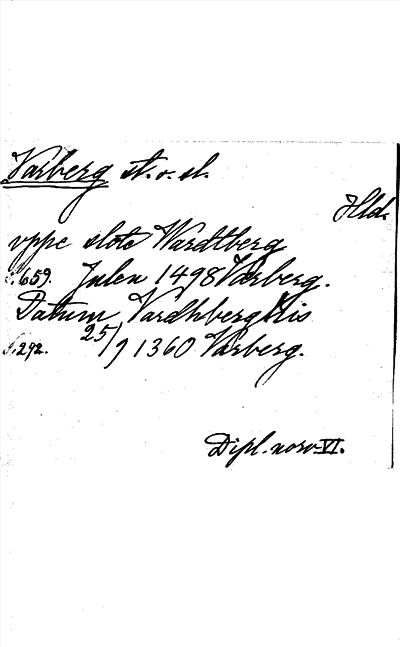 Varberg st. o. sl.
Hld.
vppe slote Wardtberg
s. 659. Julen 1498 Varberg.
Datum Vardhberghis
s. 292. 25/7 1360 Varberg.
Dipl. norv. VI.